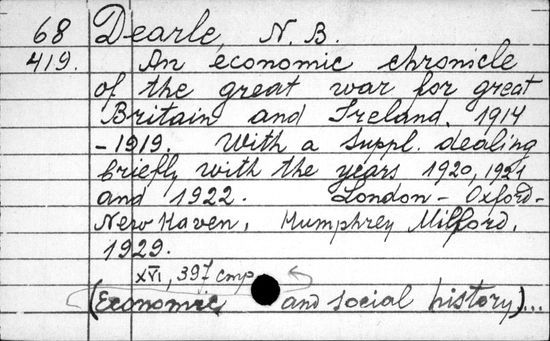 68 Dearle, N. B.
419. An economic chronicle
of the great war for great
Britain and Ireland. 1914
-1919. With a suppl. dealing
briefly with the years 1920, 1921
and 1922. London - Oxford -
New Haven, Humphrey Milford,
1929.
XVI, 397 стр.
(Economic and social history)...